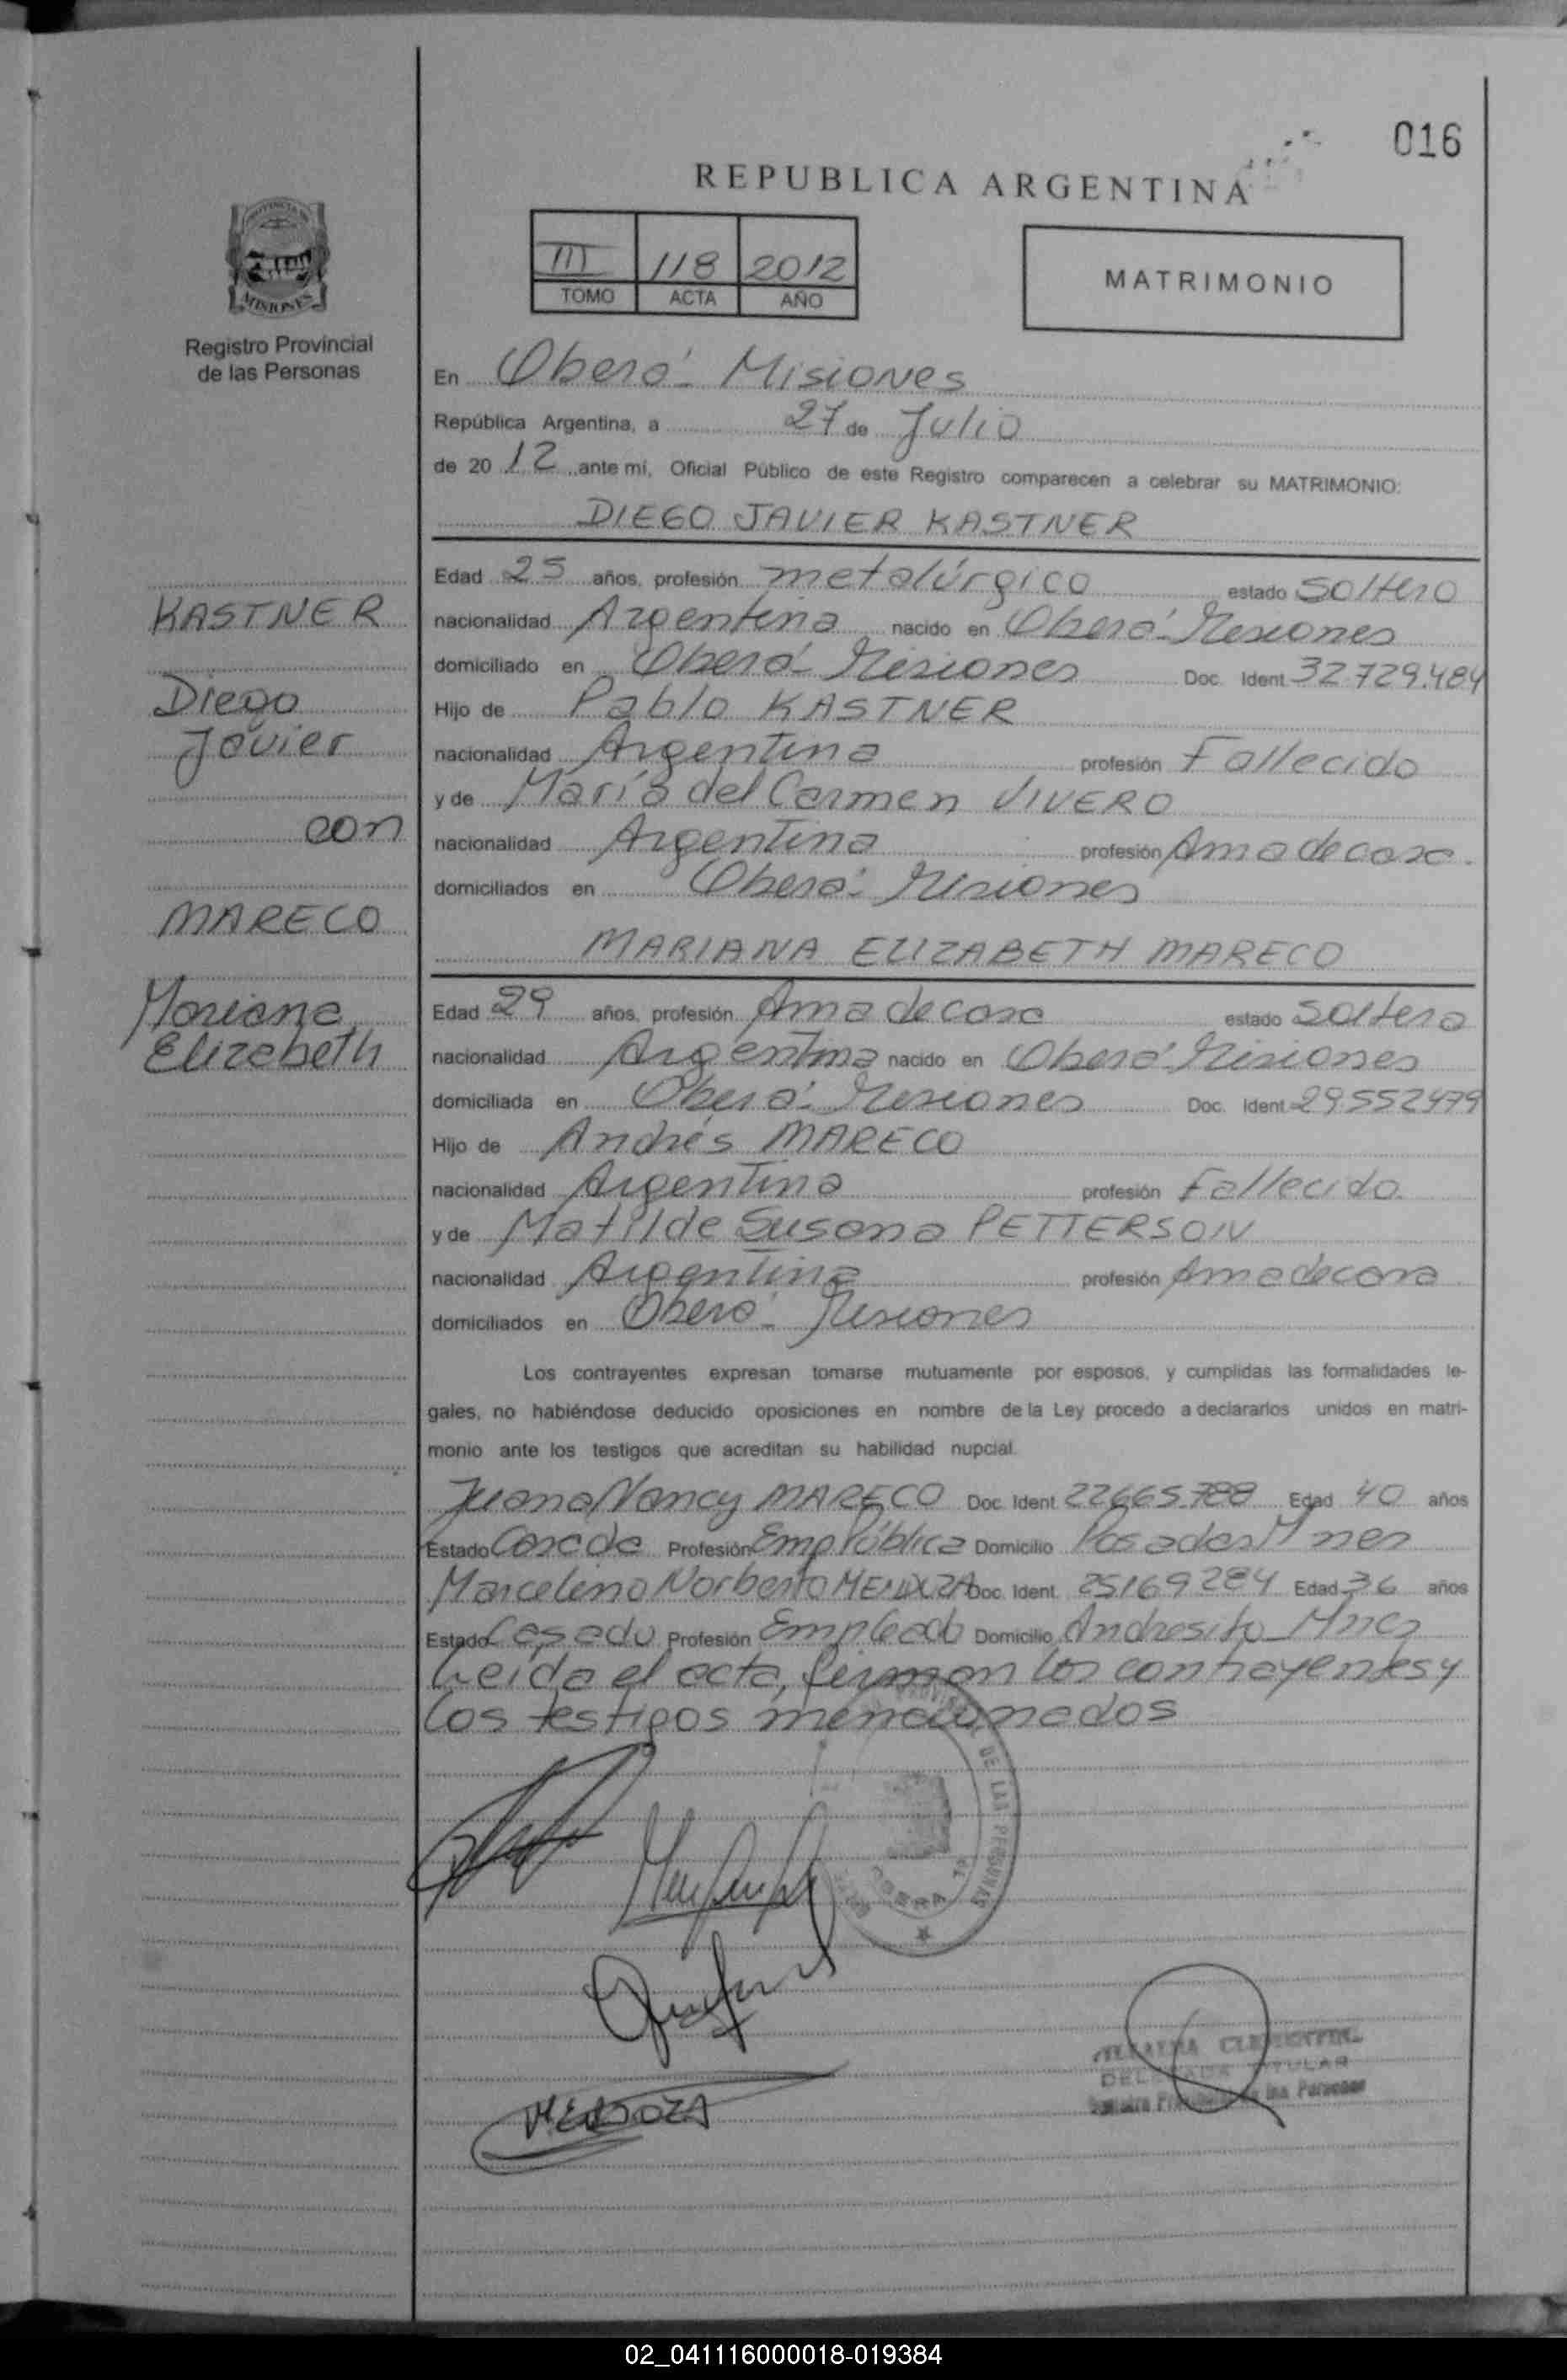 016
REPUBLICA ARGENTINA
III 118 2012
TOMO ACTA AÑO
MATRIMONIO
PROVINCIA DE
MISIONES
Registro Provincial
de las Personas
En Oberá - Misiones
República Argentina, a 27 de Julio
de 20 12 ante mí, Oficial Público de este Registro comparecen a celebrar su MATRIMONIO:
DIEGO JAVIER KASTNER
KASTNER
Diego
Javier
con
MARECO
Mariana
Elizabeth
Edad 25 años, profesión metalúrgico estado Soltero
nacionalidad Argentina nacido en Oberá - Misiones
domiciliado en Oberá - Misiones Doc. Ident. 32.729.484
Hijo de Pablo KASTNER
nacionalidad Argentina profesión Fallecido
y de María del Carmen VIVERO
nacionalidad Argentina profesión Ama de casa.
domiciliados en Oberá - Misiones
MARIANA ELIZABETH MARECO
Edad 29 años, profesión Ama de casa estado Soltera
nacionalidad Argentina nacido en Oberá - Misiones
domiciliada en Oberá - Misiones Doc. Ident. 29552479
Hijo de Andrés MARECO
nacionalidad Argentina profesión Fallecido
y de Matilde Susana PETTERSON
nacionalidad Argentina profesión Ama de casa
domiciliados en Oberá - Misiones
Los contrayentes expresan tomarse mutuamente por esposos, y cumplidas las formalidades le-
gales, no habiéndose deducido oposiciones en nombre de la Ley procedo a declararlos unidos en matri-
monio ante los testigos que acreditan su habilidad nupcial.
Juana Nancy MARECO Doc. Ident. 22665788 Edad 40 años
Estado Casada Profesión Emp Pública Domicilio Posadas Mnes
Marcelino Norberto MENDOZA Doc. Ident. 25169284 Edad 36 años
Estado Casado Profesión Empleado Domicilio Andresito Mnes
Leída el acta, firman los contrayentes y
los testigos mencionados
DE LAS PERSONAS
OBERA
MENDOZA
TITULAR
02_041116000018-019384